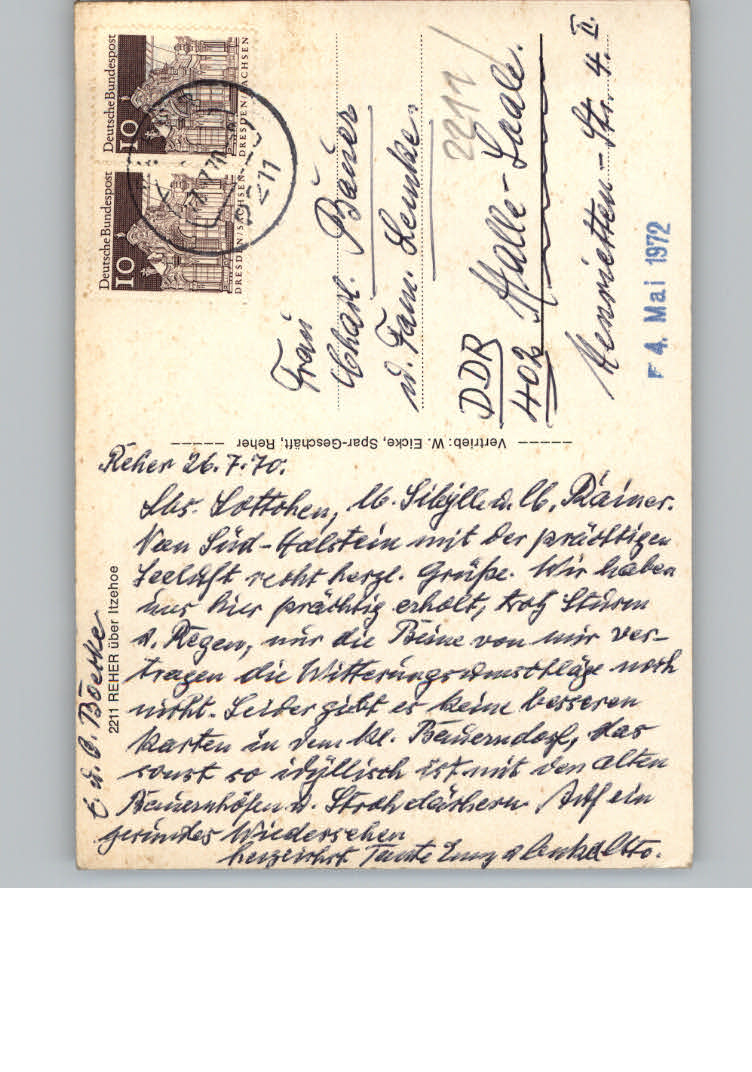 Deutsche Bundespost
10
DRESDEN/SACHSEN
Deutsche Bundespost
10
DRESDEN/SACHSEN
2211
Frau
Charl. Bauer
u. Fam. Lemke.
2211
DDR
402 Halle-Saale.
Henrietten-Str. 4 II.
F 4. Mai 1972
Vertrieb: W. Eicke, Spar-Geschäft, Reher
2211 REHER über Itzehoe
Reher 26.7.70.
Lbs. Lottchen, lb. Sibylle u. lb. Rainer.
Von Süd-Holstein mit der prächtigen
Seeluft recht herzl. Grüße. Wir haben
uns hier prächtig erholt, trotz Sturm
u. Regen, nur die Beine von mir ver-
tragen die Witterungsumschläge noch
nicht. Leider gibt es keine besseren
Karten in dem kl. Bauerndorf, das
sonst so idyllisch ist mit den alten
Bauernhöfen u. Strohdächern. Auf ein
gesundes Wiedersehen
herzlichst Tante Emy u Onkel Otto.
E. u. O. Boethe